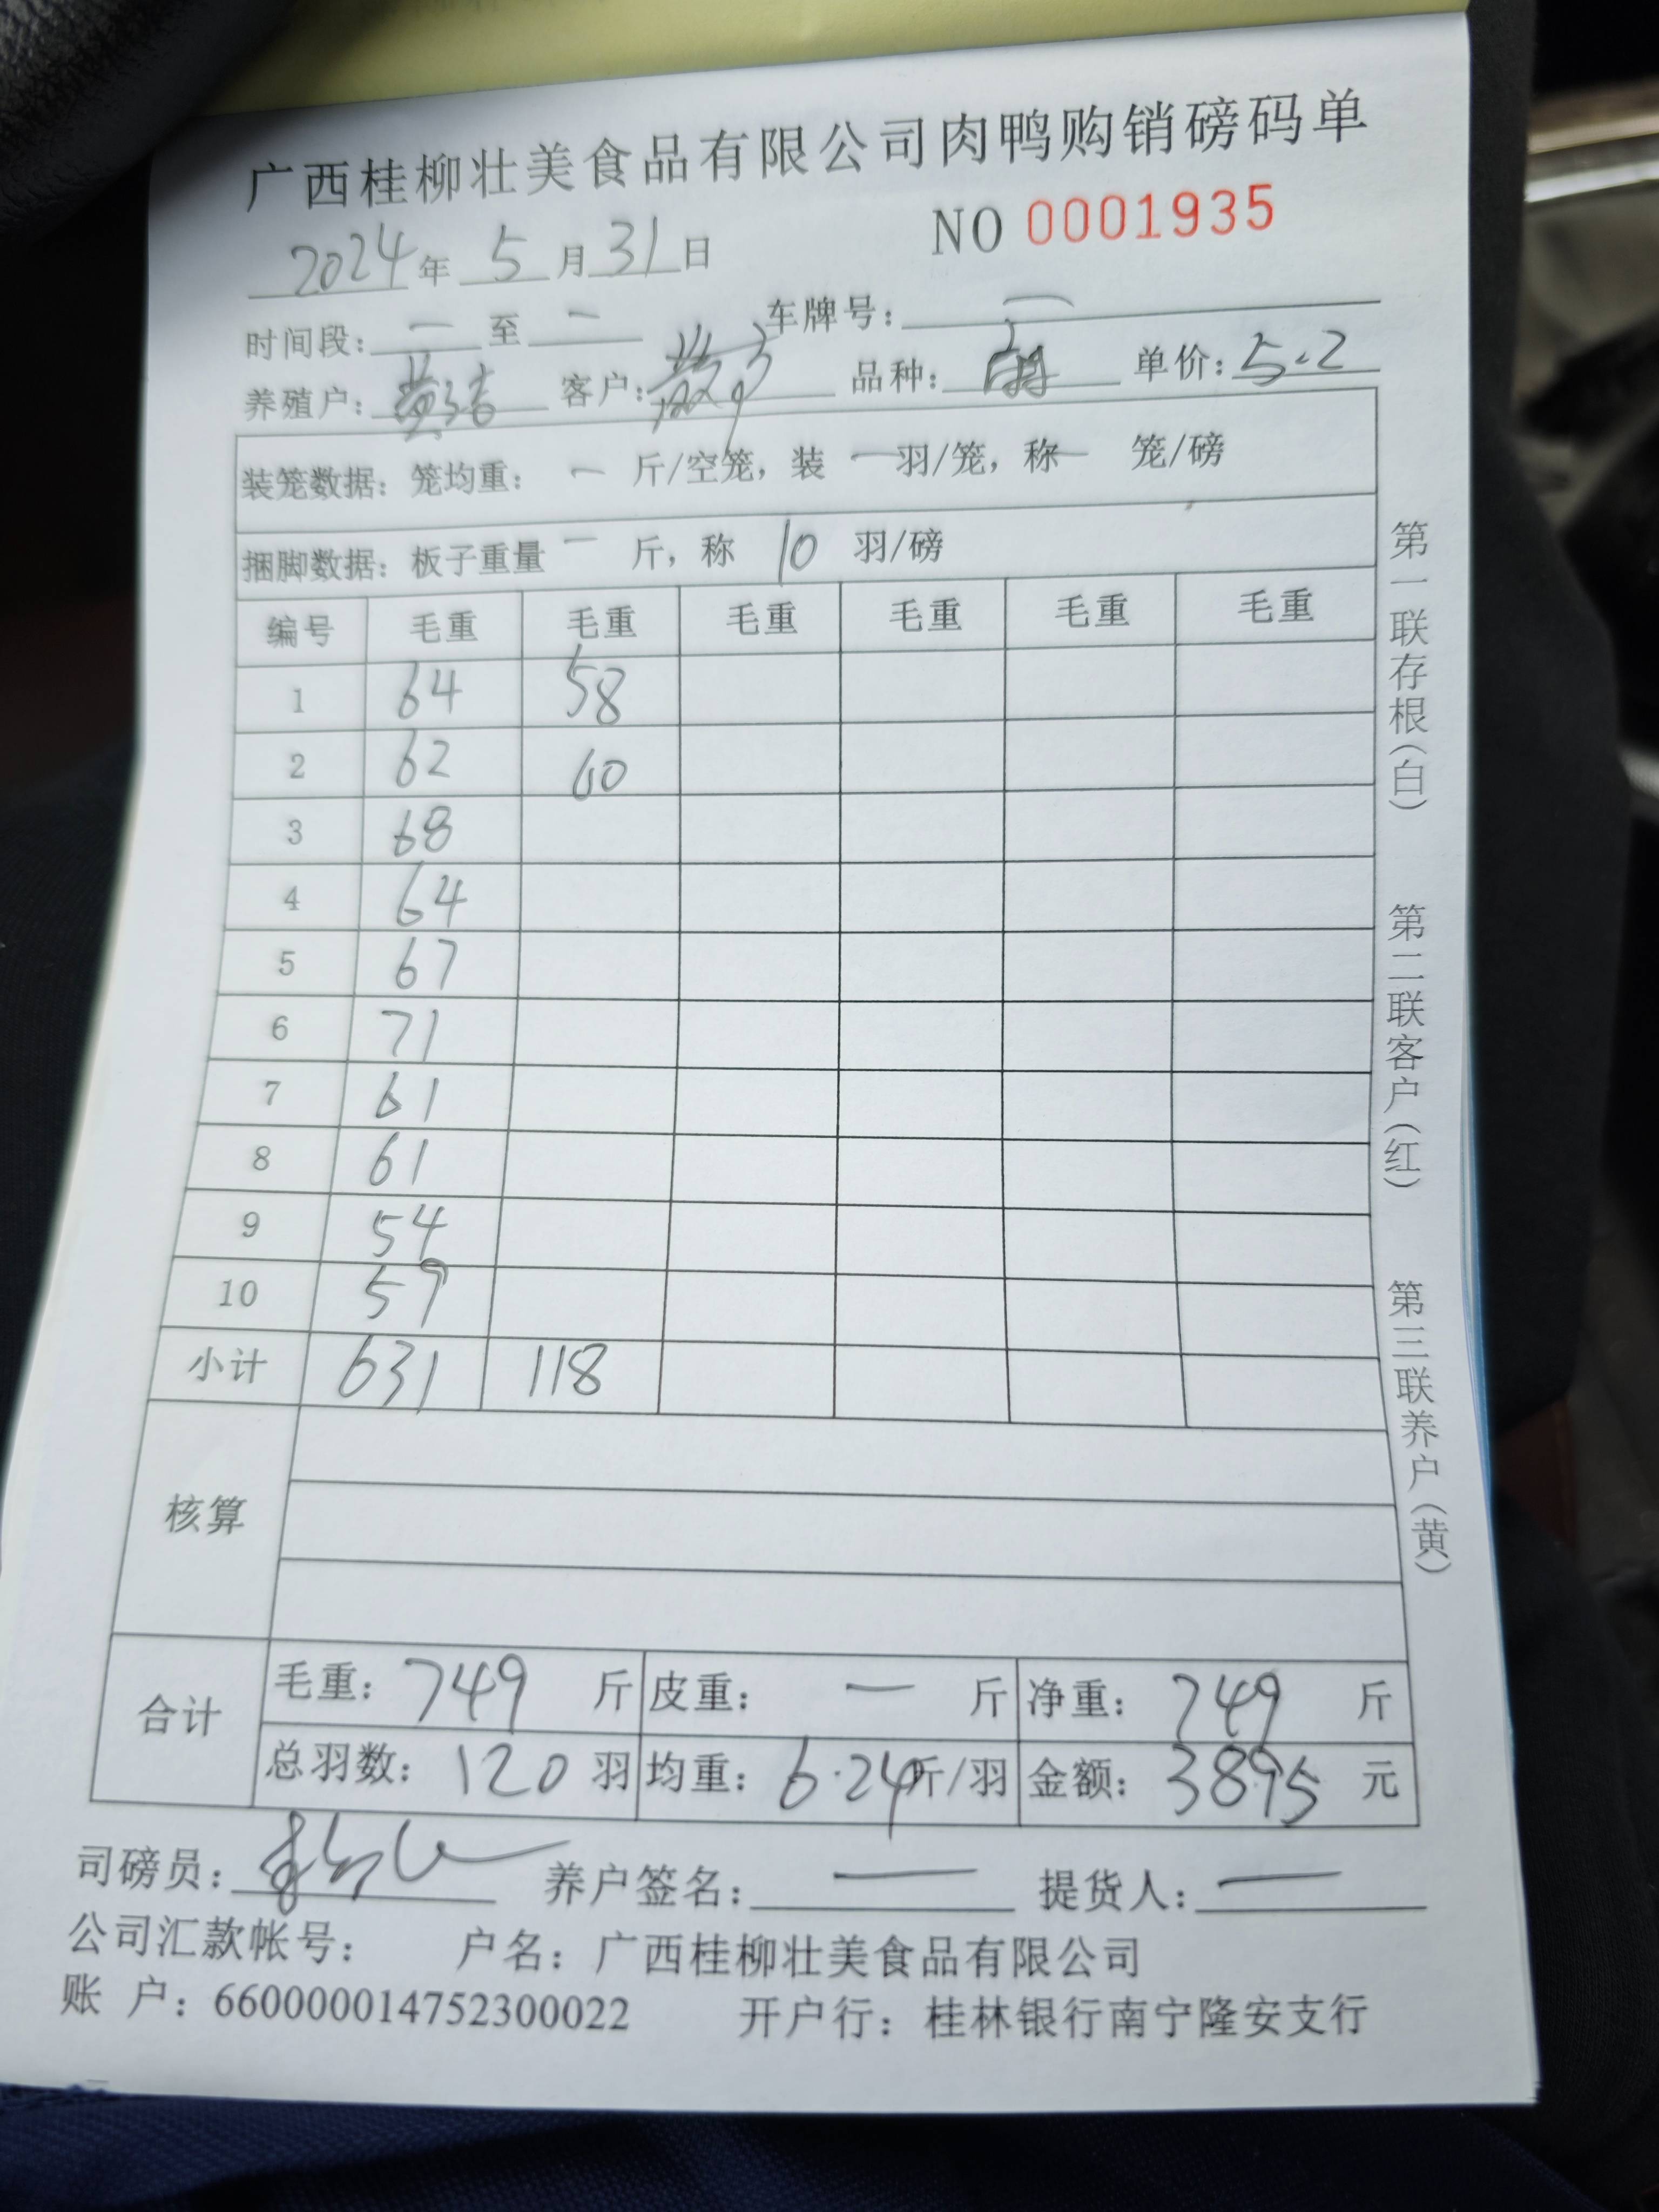 广西桂柳壮美食品有限公司肉鸭购销磅码单
NO 0001935
2024年 5月31日
时间段：一 至 一 车牌号：一
养殖户：黄 客户：黄 品种： 单价：5.2
装笼数据：笼均重： 一 斤/空笼，装 一 羽/笼，称 一 笼/磅
捆脚数据：板子重量 一 斤，称 10 羽/磅
编号 毛重 毛重 毛重 毛重 毛重 毛重
1 64 58
2 62 60
3 68
4 64
5 67
6 71
7 61
8 61
9 54
10 59
小计 631 118
核算
合计
毛重：749 斤 皮重： 一 斤 净重：749 斤
总羽数：120 羽 均重：6.24 斤/羽 金额：3895 元
司磅员： 养户签名：一 提货人：一
公司汇款帐号： 户名：广西桂柳壮美食品有限公司
账 户：660000014752300022 开户行：桂林银行南宁隆安支行
第一联存根（白）
第二联客户（红）
第三联养户（黄）